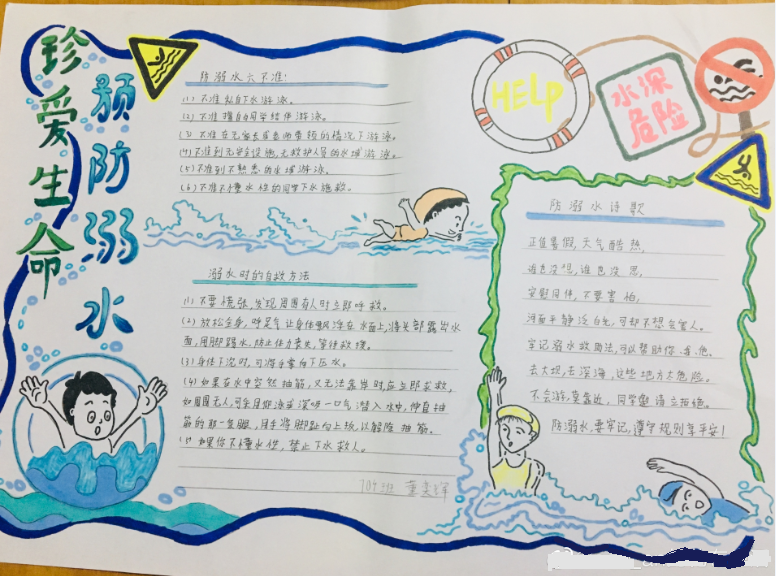 珍爱生命
预防溺水
防溺水六不准!
(1) 不准私自下水游泳。
(2) 不准擅自与同学结伴游泳。
(3) 不准在无家长或老师带领的情况下游泳。
(4) 不准到无安全设施,无救护人员的水域游泳。
(5) 不准到不熟悉的水域游泳。
(6) 不准不懂水性的同学下水施救。
溺水时的自救方法
(1) 不要慌张,发现周围有人时立即呼救。
(2) 放松全身,呼足气让身体飘浮在水面上,将头部露出水
面,用脚踢水,防止体力丧失,等待救援。
(3) 身体下沉时,可将手掌向下压水。
(4) 如果在水中突然抽筋,又无法靠岸时,应立即求救,
如周围无人,可采用仰泳或深吸一口气潜入水中,伸直抽
筋的那一隻腿,用手将脚趾向上扳,以解除抽筋。
(5) 如果你不懂水性,禁止下水救人。
704班 董
HELP
水深
危险
防溺水诗歌
正值暑假,天气酷热,
谁也没想,谁也没思,
安慰同伴,不要害怕,
河面平静泛白光,可却不想会害人。
牢记溺水救助法,可以帮助你,自危。
去大坝,去深海,这些地方太危险。
不会游,莫靠近,同学邀请立拒绝。
防溺水,要牢记,遵守规则享平安!